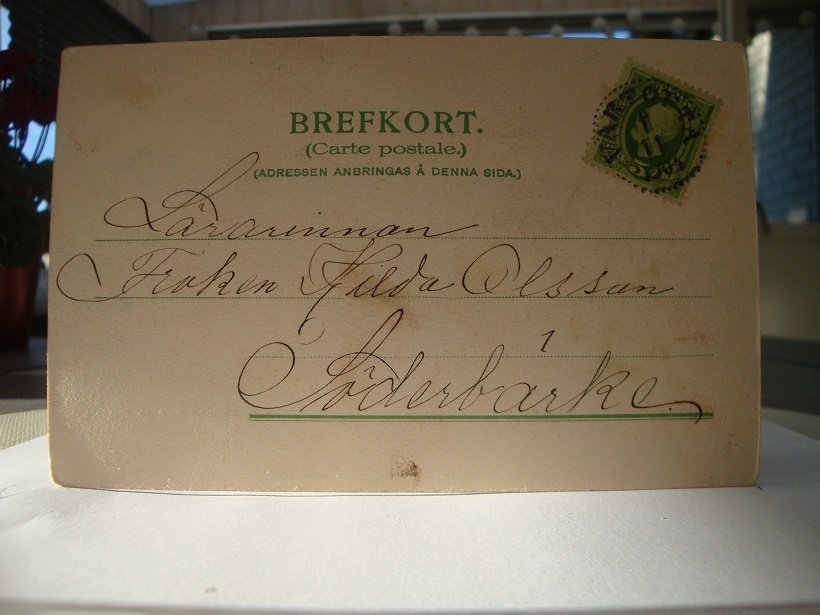 BREFKORT.
(Carte postale.)
(ADRESSEN ANBRINGAS Å DENNA SIDA.)
Lärarinnan
Fröken Hilda Olsson
Söderbärke